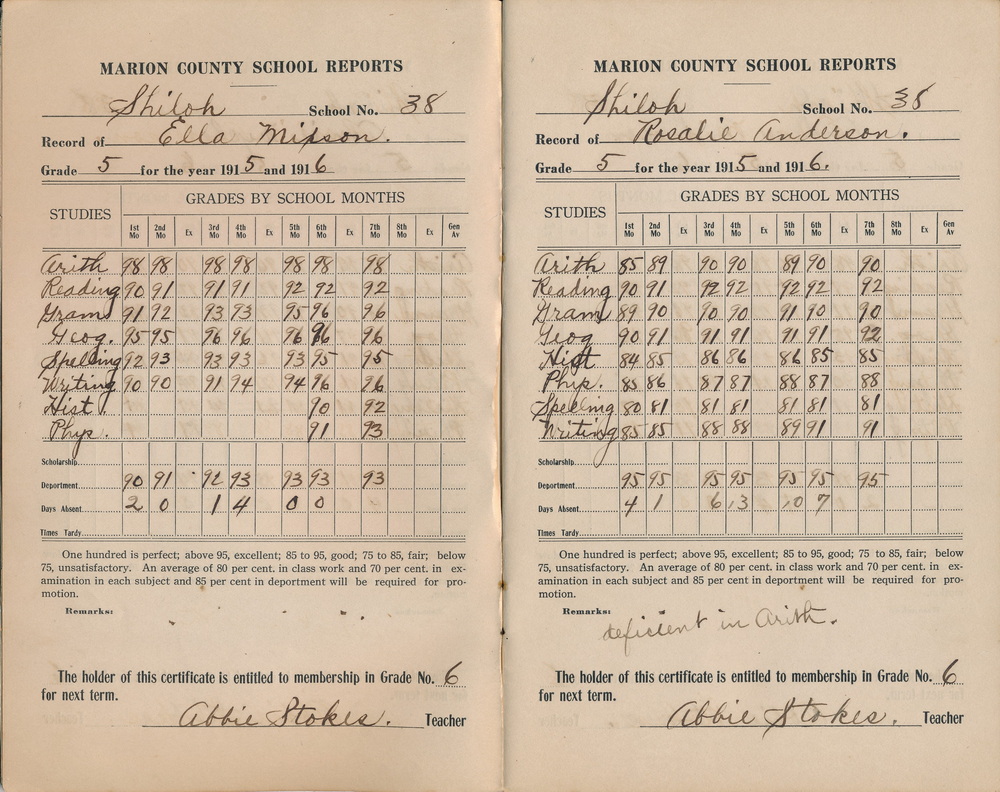 MARION COUNTY SCHOOL REPORTS
Shiloh School No. 38
Record of Ella Mixson.
Grade 5 for the year 1915 and 1916
STUDIES GRADES BY SCHOOL MONTHS
1st Mo 2nd Mo Ex 3rd Mo 4th Mo Ex 5th Mo 6th Mo Ex 7th Mo 8th Mo Ex Gen Av
Arith 98 98 98 98 98 98 98
Reading 90 91 91 91 92 92 92
Gram 91 92 93 93 95 96 96
Geog. 95 95 96 96 96 96 96
Spelling 92 93 93 93 93 95 95
Writing 90 90 91 94 94 96 96
Hist. 90 92
Phys. 91 93
Scholarship
Department 90 91 92 93 93 93 93
Days Absent 2 0 1 4 0 0
Times Tardy
One hundred is perfect; above 95, excellent; 85 to 95, good; 75 to 85, fair; below
75, unsatisfactory. An average of 80 per cent. in class work and 70 per cent. in ex-
amination in each subject and 85 per cent in deportment will be required for pro-
motion.
Remarks:
The holder of this certificate is entitled to membership in Grade No. 6
for next term.
Abbie Stokes. Teacher
MARION COUNTY SCHOOL REPORTS
Shiloh School No. 38
Record of Rosalie Anderson.
Grade 5 for the year 1915 and 1916.
STUDIES GRADES BY SCHOOL MONTHS
1st Mo 2nd Mo Ex 3rd Mo 4th Mo Ex 5th Mo 6th Mo Ex 7th Mo 8th Mo Ex Gen Av
Arith 85 89 90 90 89 90 90
Reading 90 91 92 92 92 92 92
Gram 89 90 90 90 91 90 90
Geog 90 91 91 91 91 91 92
Hist 84 85 86 86 86 85 85
Phys. 85 86 87 87 88 87 88
Spelling 80 81 81 81 81 81 81
Writing 85 85 88 88 89 91 91
Scholarship
Department 95 95 95 95 95 95 95
Days Absent 4 1 6 13 10 7
Times Tardy
One hundred is perfect; above 95, excellent; 85 to 95, good; 75 to 85, fair; below
75, unsatisfactory. An average of 80 per cent. in class work and 70 per cent. in ex-
amination in each subject and 85 per cent in deportment will be required for pro-
motion.
Remarks:
deficient in Arith.
The holder of this certificate is entitled to membership in Grade No. 6
for next term.
Abbie Stokes. Teacher